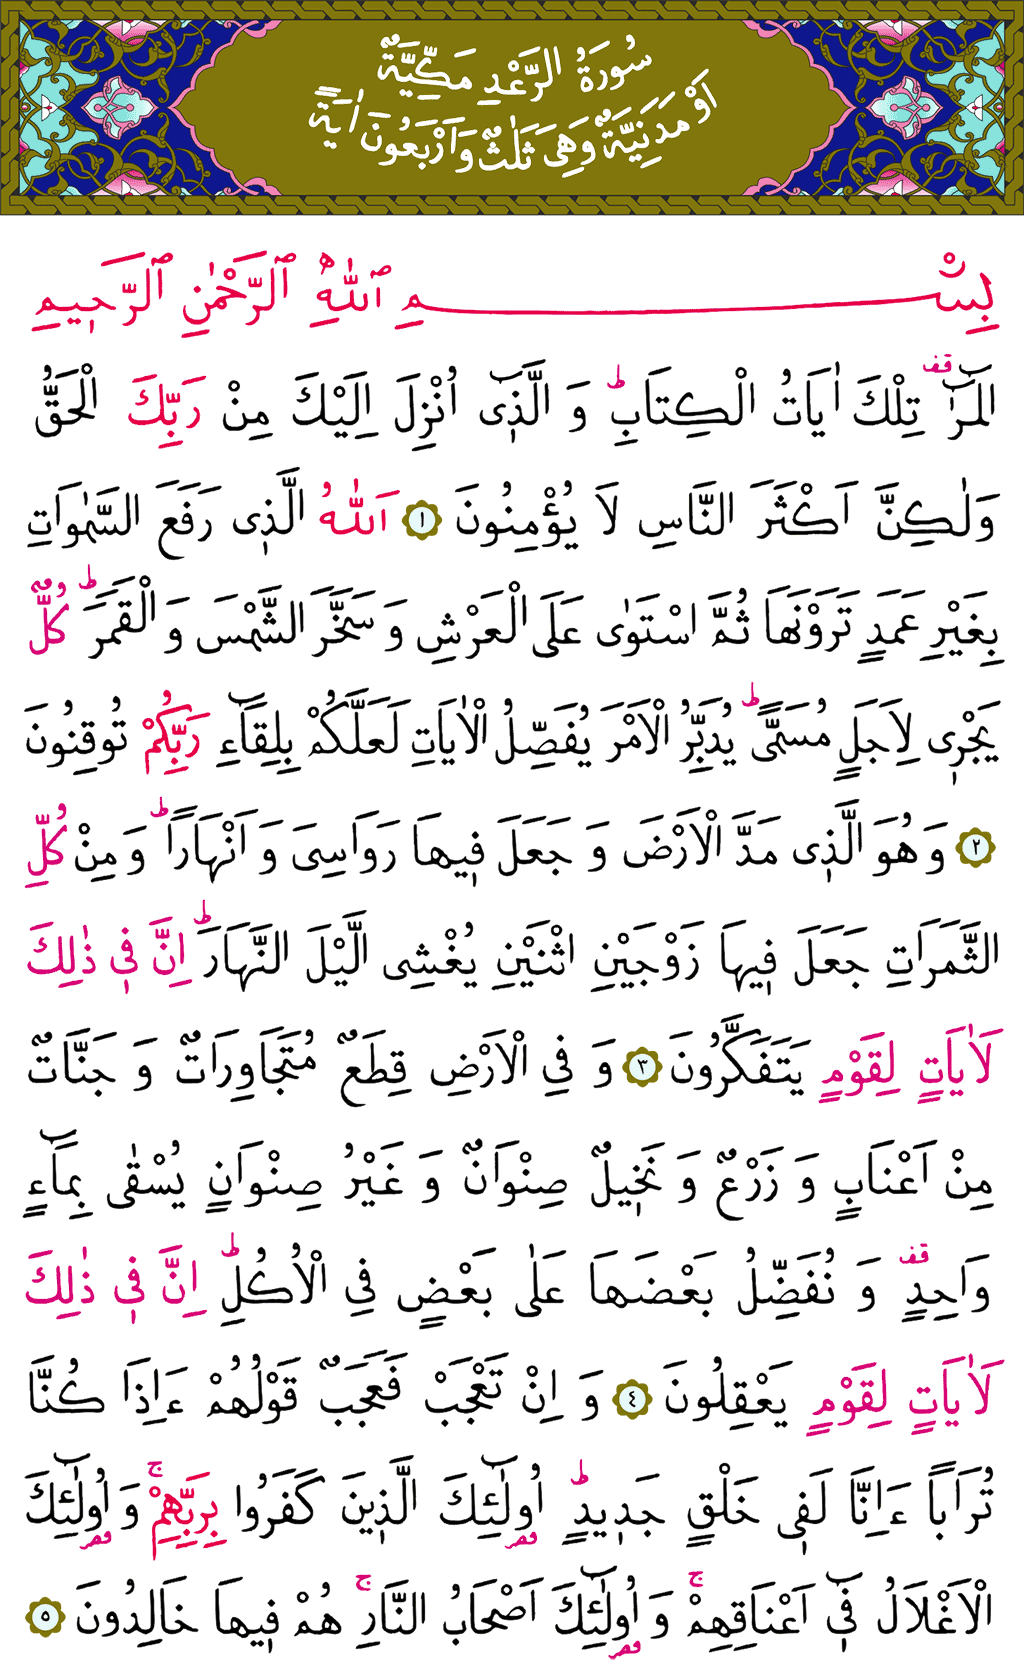 سُورَةُ الرَّعْدِ مَكِّيَّةٌ
اَوْ مَدَنِيَّةٌ وَهِيَ ثَلٰثٌ وَاَرْبَعُونَ اٰيَةً
بِسْمِ ٱللّٰهِ ٱلرَّحْمٰنِ ٱلرَّحٖيمِ
الٓمٓرٰ قف تِلْكَ اٰيَاتُ الْكِتَابِ ط وَ الَّذٖٓى اُنْزِلَ اِلَيْكَ مِنْ رَبِّكَ الْحَقُّ
وَلٰكِنَّ اَكْثَرَ النَّاسِ لَا يُؤْمِنُونَ ١ اَللّٰهُ الَّذٖى رَفَعَ السَّمٰوَاتِ
بِغَيْرِ عَمَدٍ تَرَوْنَهَا ثُمَّ اسْتَوٰى عَلَى الْعَرْشِ وَ سَخَّرَ الشَّمْسَ وَ الْقَمَرَ ط كُلٌّ
يَجْرٖى لِاَجَلٍ مُسَمًّى ط يُدَبِّرُ الْاَمْرَ يُفَصِّلُ الْاٰيَاتِ لَعَلَّكُمْ بِلِقَٓاءِ رَبِّكُمْ تُوقِنُونَ
٢ وَ هُوَ الَّذٖى مَدَّ الْاَرْضَ وَ جَعَلَ فٖيهَا رَوَاسِىَ وَ اَنْهَارًا ط وَ مِنْ كُلِّ
الثَّمَرَاتِ جَعَلَ فٖيهَا زَوْجَيْنِ اثْنَيْنِ يُغْشِى الَّيْلَ النَّهَارَ ط اِنَّ فٖى ذٰلِكَ
لَاٰيَاتٍ لِقَوْمٍ يَتَفَكَّرُونَ ٣ وَ فِى الْاَرْضِ قِطَعٌ مُتَجَاوِرَاتٌ وَ جَنَّاتٌ
مِنْ اَعْنَابٍ وَ زَرْعٌ وَ نَخٖيلٌ صِنْوَانٌ وَ غَيْرُ صِنْوَانٍ يُسْقٰى بِمَٓاءٍ
وَاحِدٍ قف وَ نُفَضِّلُ بَعْضَهَا عَلٰى بَعْضٍ فِى الْاُكُلِ ط اِنَّ فٖى ذٰلِكَ
لَاٰيَاتٍ لِقَوْمٍ يَعْقِلُونَ ٤ وَ اِنْ تَعْجَبْ فَعَجَبٌ قَوْلُهُمْ ءَاِذَا كُنَّا
تُرَابًا ءَاِنَّا لَفٖى خَلْقٍ جَدٖيدٍ ط اُولٰٓئِكَ الَّذٖينَ كَفَرُوا بِرَبِّهِمْ ج وَ اُولٰٓئِكَ
الْاَغْلَالُ فٖٓى اَعْنَاقِهِمْ ج وَ اُولٰٓئِكَ اَصْحَابُ النَّارِ ج هُمْ فٖيهَا خَالِدُونَ ٥